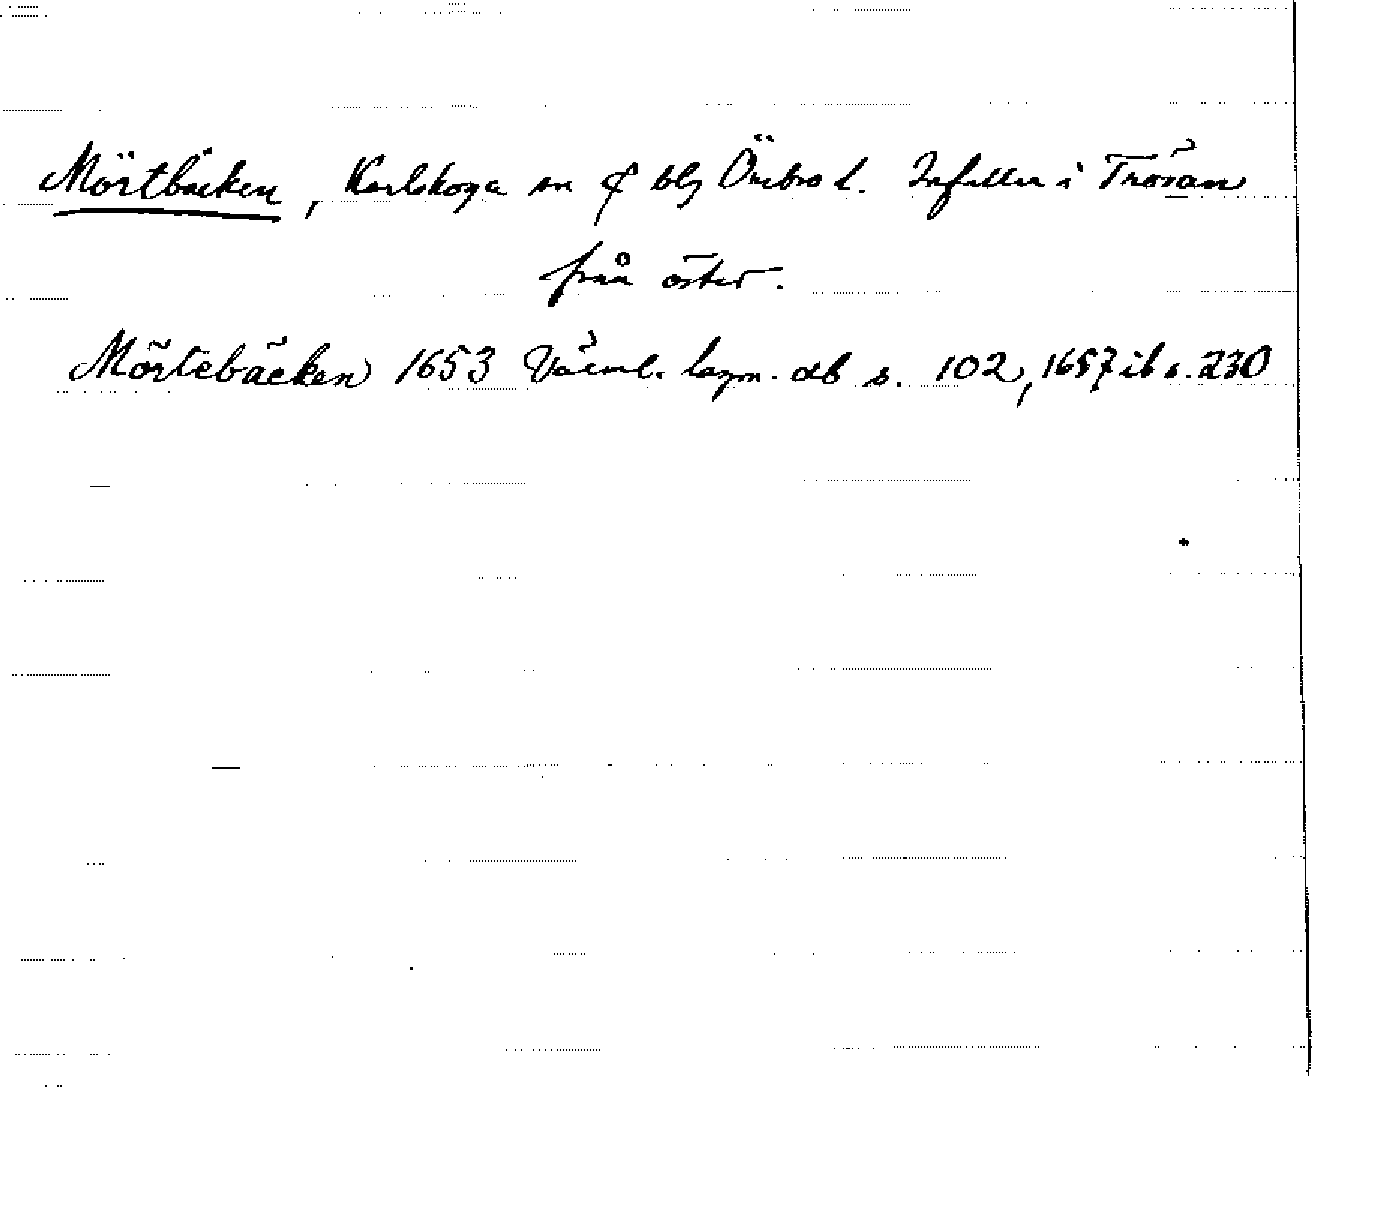 Mörtbäcken, Karlskoga sn & blg Örebro l. Infaller i Trösän
från öster.
Mörtebäcken 1653 Värml. lagm. db s. 102, 1657 ib s. 230